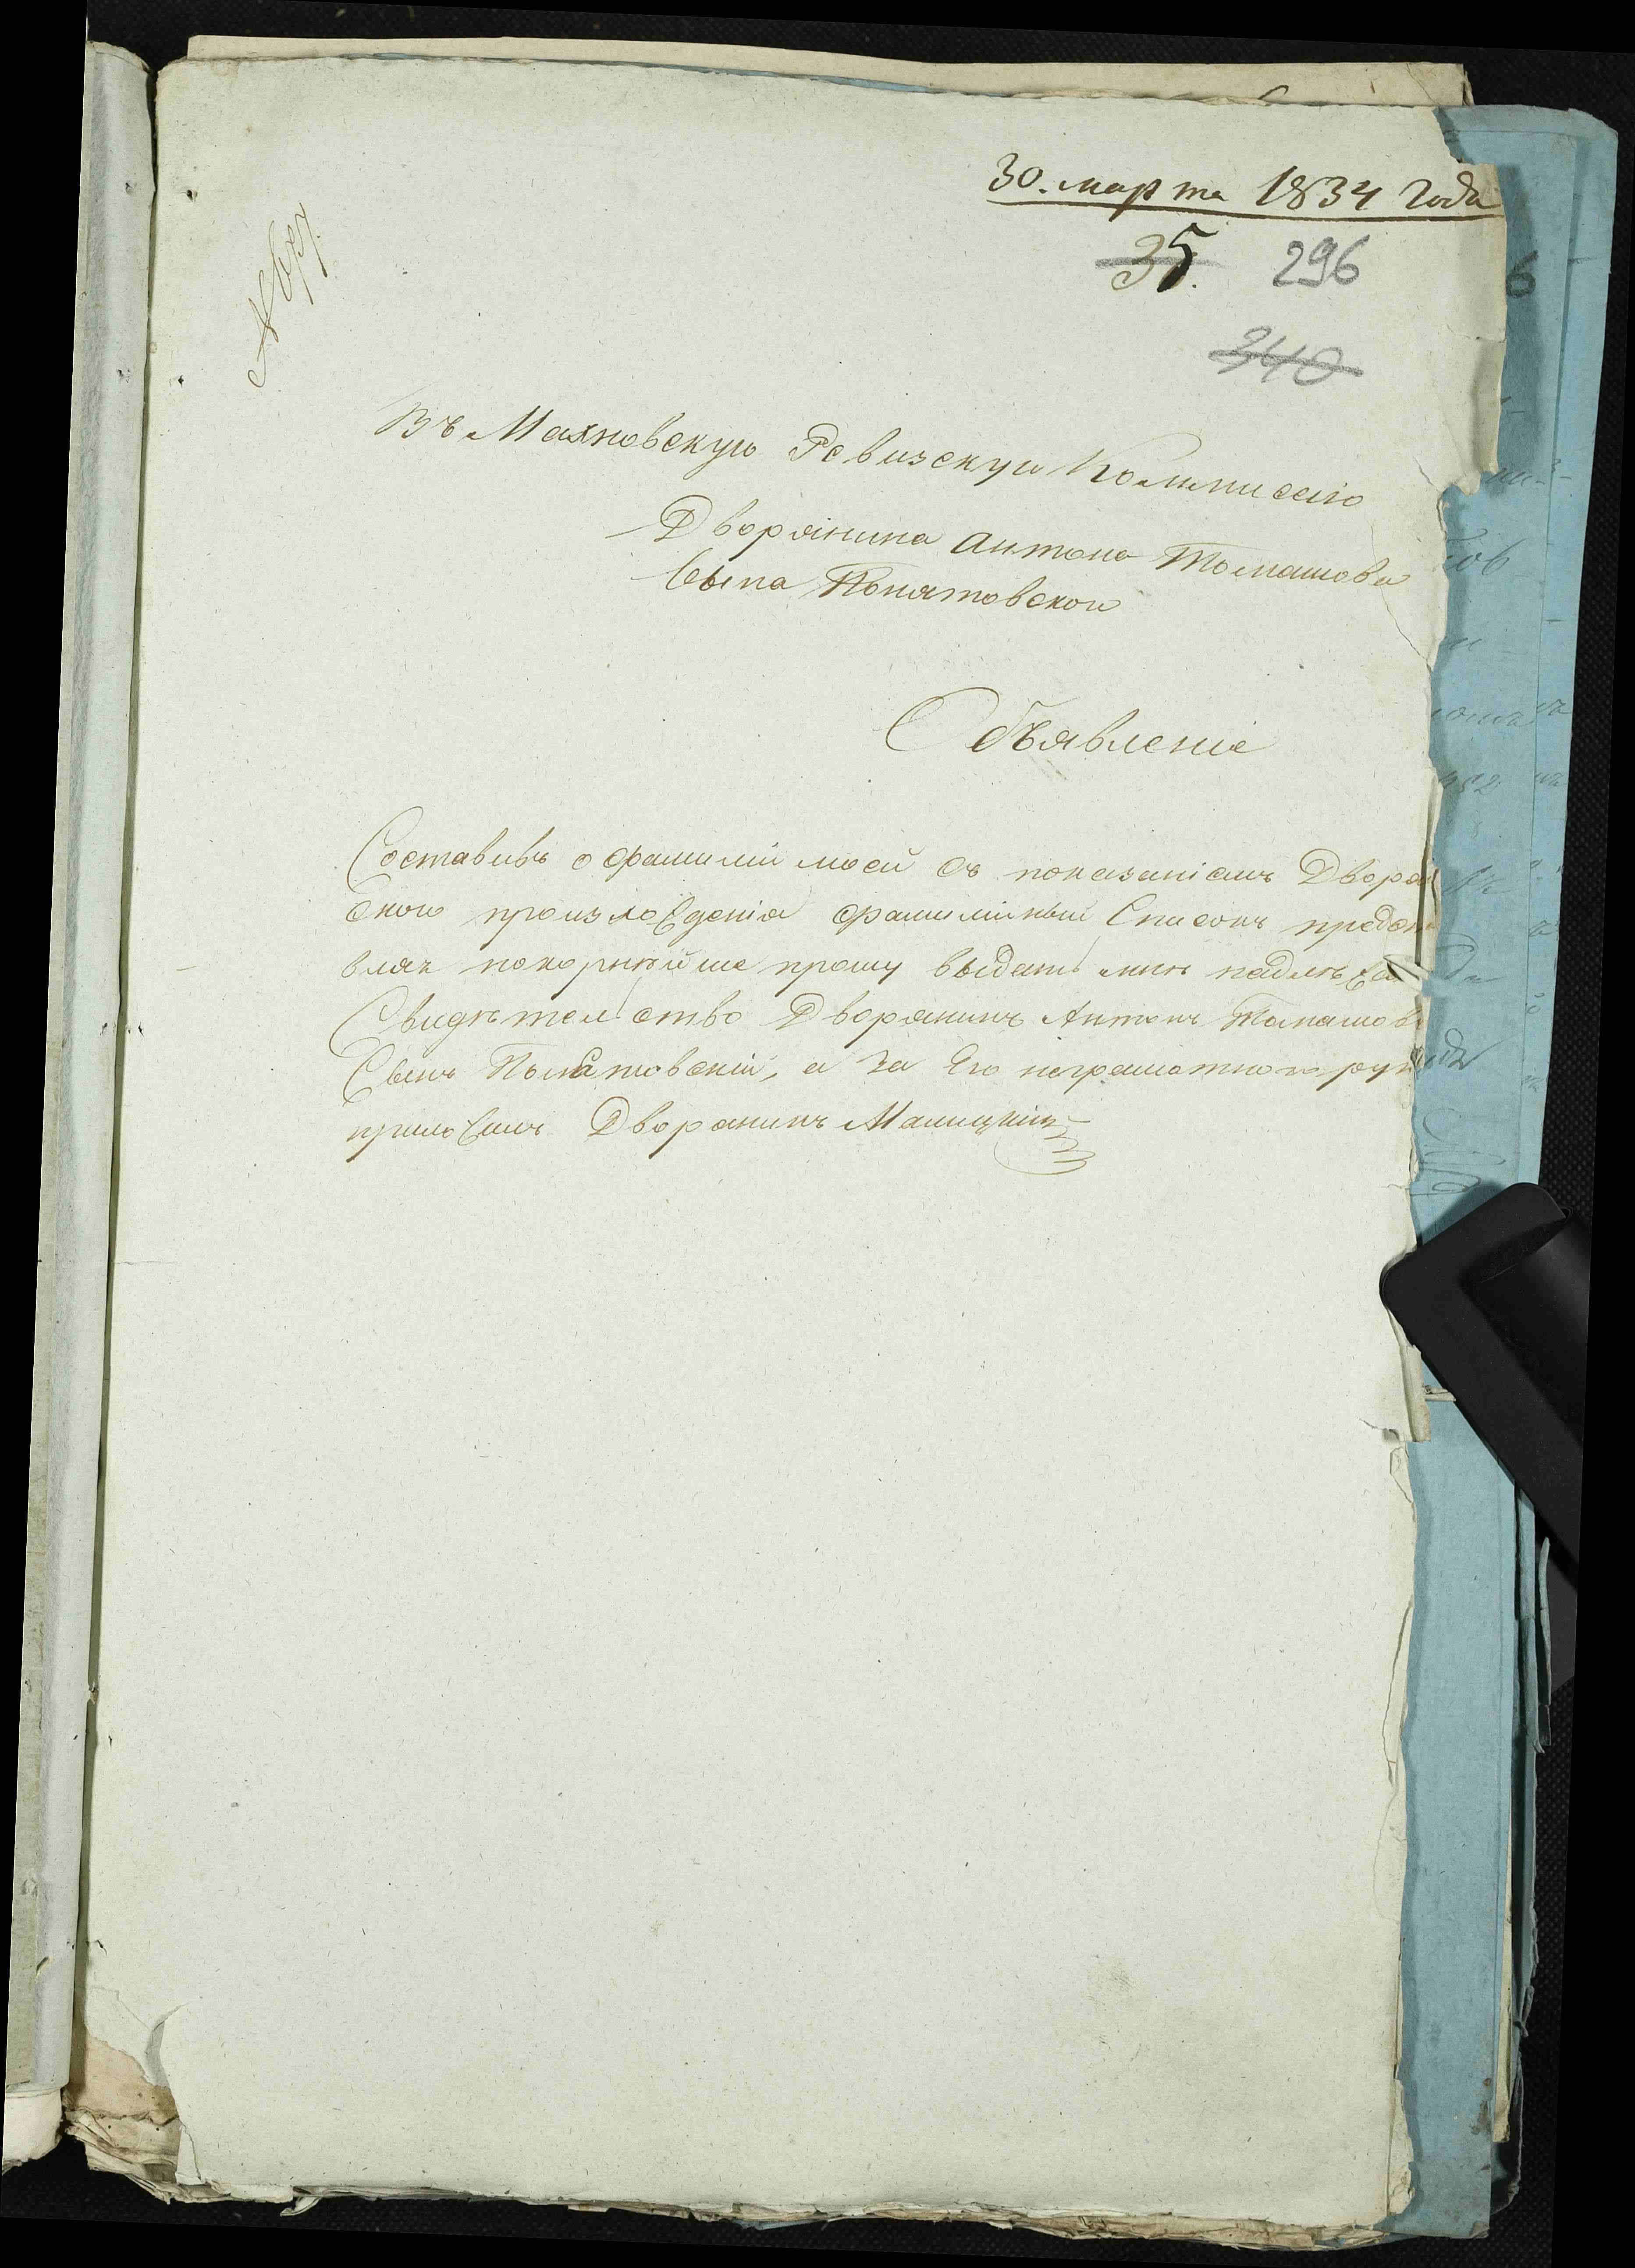 30. марта 1834 года
35. 296
340
Въ Махновскую Ревизскую Коммисію
Дворянина Антона Томашова
Сына Понятовскою
Объявленіе
Составивъ о фамиліи моей съ показаніемъ Дворян
скою происхожденія фамилійный Списокъ предста
вляя покорнѣйше прошу выдать мнѣ надлежа
Свидѣтелство Дворянинъ Антонъ Томашовъ
Сынъ Понятовскій, а за Его неграмотною рук
приложилъ Дворянинъ Малицкій